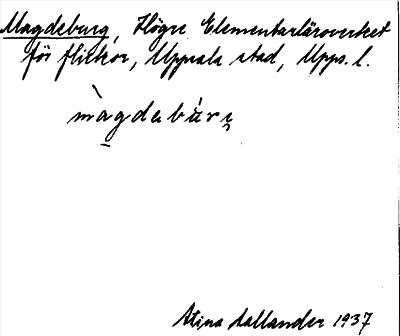 Magdeburg, Högre Elementarläroverket
för flickor, Uppsala stad, Upps. l.
màgdebùrg
Stina Hallander 1937